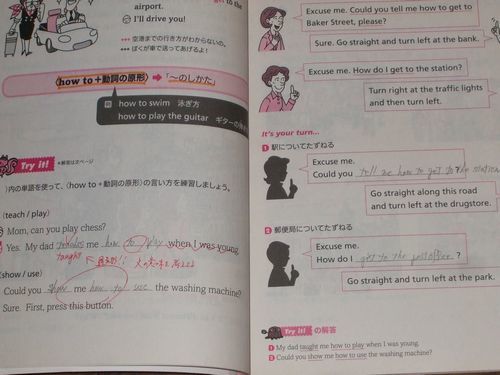 airport.
to the
I'll drive you!
空港までの行き方がわからないの。
ぼくが車で送ってあげるよ！
how to＋動詞の原形 → 「～のしかた」
例 how to swim 泳ぎ方
how to play the guitar ギターの
Try it!
）内の単語を使って、〈how to＋動詞の原形〉の言い方を練習しましょう。
(teach / play)
Mom, can you play chess?
Yes. My dad me how to play when I was young.
taught
(show / use)
Could you show me how to use the washing machine?
Sure. First, press this button.
Excuse me. Could you tell me how to get to
Baker Street, please?
Sure. Go straight and turn left at the bank.
Excuse me. How do I get to the station?
Turn right at the traffic lights
and then turn left.
It's your turn...
1 駅についてたずねる
Excuse me.
Could you tell me how to get to the station
Go straight along this road
and turn left at the drugstore.
2 郵便局についてたずねる
Excuse me.
How do I get to the postoffice ?
Go straight and turn left at the park.
Try it! の解答
1 My dad taught me how to play when I was young.
2 Could you show me how to use the washing machine?